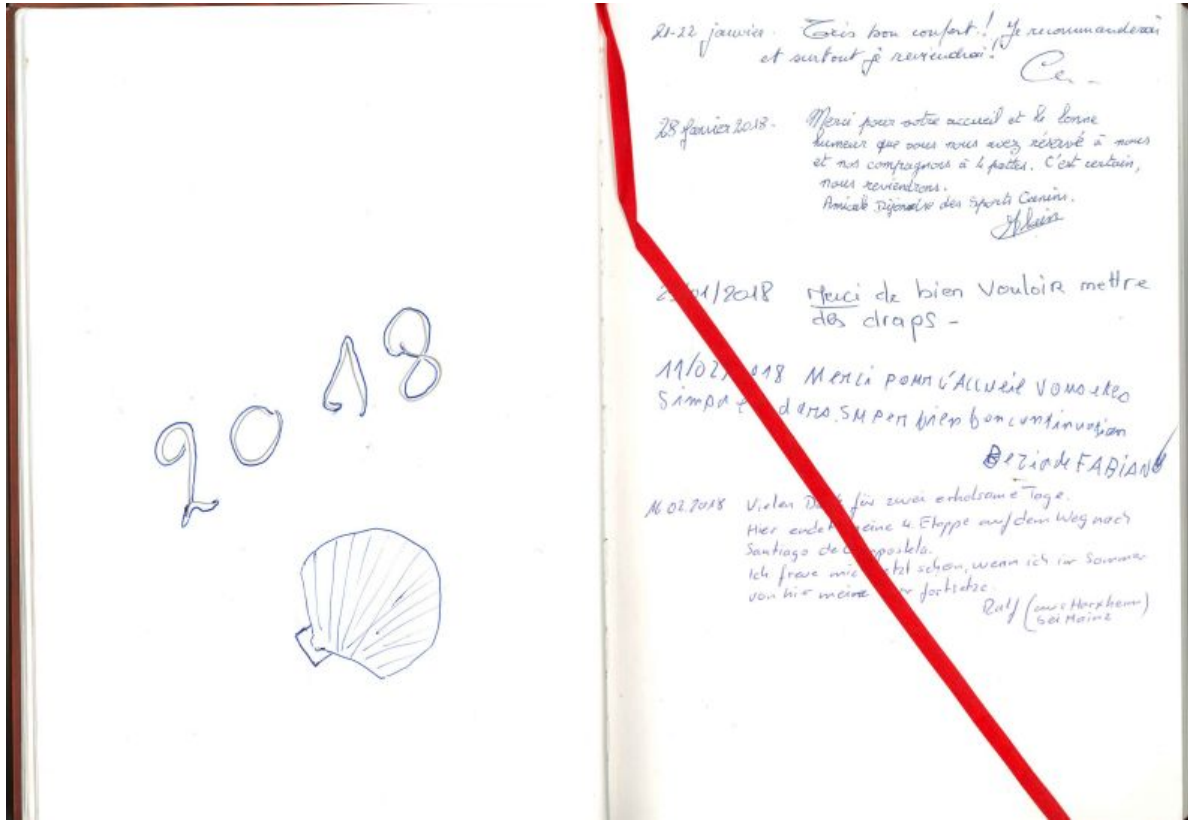 2018
21-22 janvier. Très bon confort! Je recommanderai
et surtout je reviendrai!
28 Janvier 2018. Merci pour votre accueil et la bonne
humeur que vous nous avez réservé à nous
et nos compagnons à 4 pattes. C'est certain,
nous reviendrons.
Amicale Dijonnaise des Sports Canins.
/01/2018 Merci de bien vouloir mettre
des draps -
11/02/2018 Merci pour l'Accueil vous etes
dans. super bien bon continuation
FABIAN
16.02.2018 Vielen Dank für zwei erholsame Tage.
Hier endet meine 4. Etappe auf dem Weg nach
Santiago de Compostela.
Ich freue mich jetzt schon, wenn ich im Sommer
von hier meine fortsetze.
Ralf (aus Harxheim)
bei Mainz